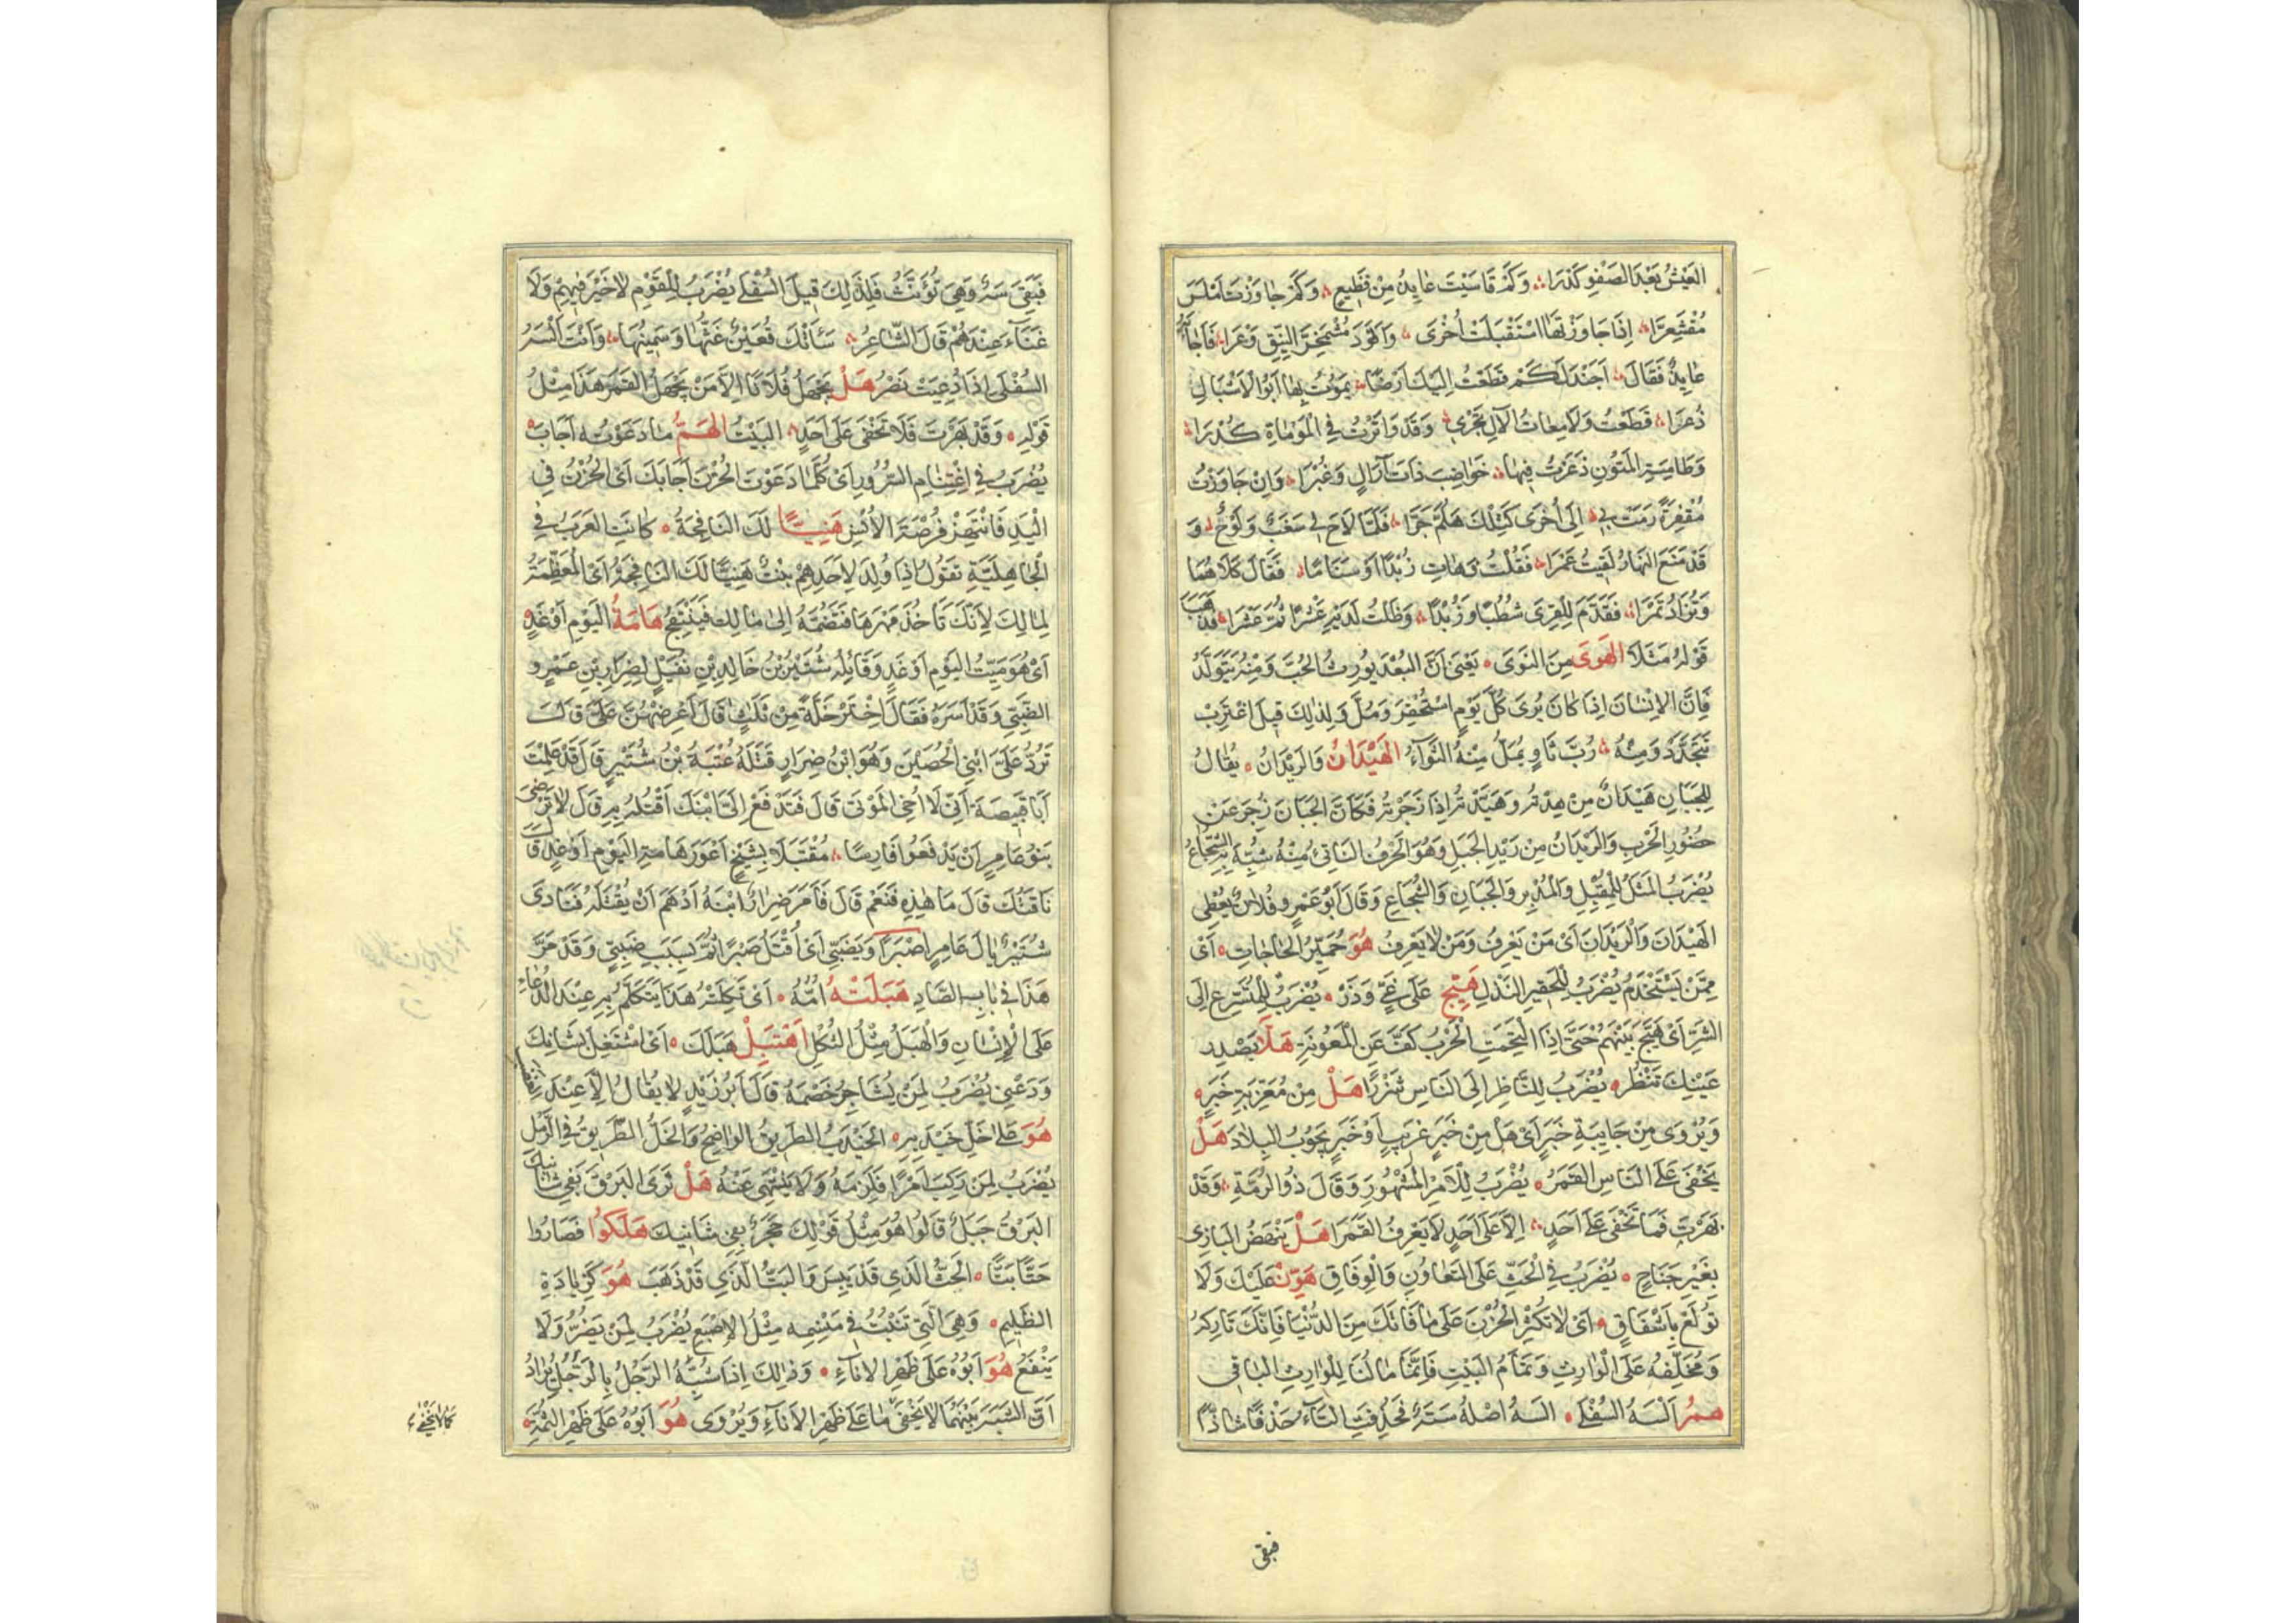 العَيْشُ بَعْدَ الصَّفْوِ كَدَرَا وَكَمْ قَاسَيْتَ عَايِدُ مِنْ فَظِيعٍ وَكَمْ جَاوَزْتَ اَمْلَسَ
مُقْشَعِرَّا اِذَا جَاوَزْتَهَا اسْتَقْبَلْتَ اُخْرَى وَاَقْوَدَ مُشْمَخِرَّ النِّيقِ وَعْرَا فَاَجَابَهُ
عَايِدٌ فَقَالَ اَجَنْدَلَ كَمْ قَطَعْتُ اِلَيْكَ اَرْضًا يَمُوتُ بِهَا اَبُو الْاَشْبَالِ
ذُعْرَا قَطَعْتُ وَلَامِعَاتُ الْآلِ تَجْرِي وَقَدْ وَاتَرْتُ فِي الْمَوْمَاةِ كُدْرَا
وَطَامِسَةِ المُتُونِ ذَعَرْتُ فِيهَا خَوَاضِبَ ذَاتَ آرَالٍ وَغُبْرَا وَاِنْ جَاوَزْتُ
مُقْفِرَةً رَمَتْ بِي اِلَى اُخْرَى كَتِلْكَ هَلُمَّ جَرَّا فَلَمَّا لَاحَ لِي سَغَبٌ وَلَوْحٌ وَ
قَدْ مَتَعَ النَّهَارُ لَقِيتُ عَمْرَا فَقُلْتُ وَهَاتِ زُبْدًا اَوْ سَنَامًا فَقَالَ كِلَاهُمَا
وَتُزَادُ تَمْرَا فَقَدَّمَ لِلْقِرَى شُطُبًا وَزُبْدًا وَظَلْتُ لَدَيْهِ عَشْرًا ثُمَّ عَشْرَا فَذَهَبَ
قَوْلُهُ مَثَلًا الهَوَى مِنَ النَّوَى يَعْنِي اَنَّ البُعْدَ يُورِثُ الحُبَّ وَمِنْهُ يَتَوَلَّدُ
فَاِنَّ الاِنْسَانَ اِذَا كَانَ يُرَى كُلَّ يَوْمٍ اسْتُحْقِرَ وَمُلَّ وَلِذٰلِكَ قِيلَ اغْتَرِبْ
تَتَجَدَّدْ وَمِنْهُ رُبَّ ثَاوٍ يُمَلُّ مِنْهُ الثَّوَآءُ الهَيْدَانُ وَالرَّيْدَانُ يُقَالُ
لِلجَبَانِ هَيْدَانٌ مِنْ هِدْتُهُ وَهَيَّدْتُهُ اِذَا زَجَرْتَهُ فَكَاَنَّ الجَبَانَ زُجِرَ عَنْ
حُضُورِ الْحَرْبِ وَالرَّيْدَانُ مِنْ رَيْدِ الجَبَلِ وَهُوَ الحَرْفُ النَّاتِئُ مِنْهُ شُبِّهَ بِهِ الشُّجَاعُ
يُضْرَبُ المَثَلُ لِلْمُقْبِلِ وَالْمُدْبِرِ وَالجَبَانِ وَالشُّجَاعِ وَقَالَ اَبُو عَمْرٍو فُلَانٌ يُعْطِي
الهَيْدَانَ وَالرَّيْدَانَ اَىْ مَنْ يَعْرِفُ وَمَنْ لَا يَعْرِفُ هُوَ حُمَيِّرُ الحَاجَاتِ اَىْ
مِمَّنْ يُسْتَخْدَمُ يُضْرَبُ لِلْحَقِيرِ النَّذْلِ هَيِّجْ عَلَى غَيٍّ وَذَرْ يُضْرَبُ لِلْمُتَسَرِّعِ اِلَى
الشَّرِّ اَىْ هَيِّجْ بَيْنَهُمْ حَتَّى اِذَا الْتَحَمَتِ الْحَرْبُ كُفَّ عَنِ الْمَعُونَةِ هَلَّا بِصَدْرِ
عَيْنِكَ تَنْظُرُ يُضْرَبُ لِلنَّاظِرِ اِلَى النَّاسِ شَزْرًا هَلْ مِنْ مُغَرِّبَةِ خَبَرٍ
وَيُرْوَى مِنْ جَايِبَةِ خَبَرٍ اَىْ هَلْ مِنْ خَبَرٍ غَرِيبٍ اَوْ خَبَرٍ يَجُوبُ البِلَادَ هَلْ
يَخْفَى عَلَى النَّاسِ القَمَرُ يُضْرَبُ لِلْاَمْرِ الْمَشْهُورِ وَقَالَ ذُو الرُّمَّةِ وَقَدْ
بَهَرْتَ فَمَا تَخْفَى عَلَى اَحَدٍ اِلَّا عَلَى اَحَدٍ لَا يَعْرِفُ القَمَرَا هَلْ يَنْهَضُ البَازِى
بِغَيْرِ جَنَاحٍ يُضْرَبُ فِي الْحَثِّ عَلَى التَّعَاوُنِ وَالْوِفَاقِ هَوِّنْ عَلَيْكَ وَلَا
تُولَعْ بِاَشْفَاقٍ اَىْ لَا تُكْثِرِ الْحُزْنَ عَلَى مَا فَاتَكَ مِنَ الدُّنْيَا فَاِنَّكَ تَارِكُهُ
وَمُخَلِّفُهُ عَلَى الْوَارِثِ وَتَمَامُ البَيْتِ فَاِنَّمَا مَالُنَا لِلْوَارِثِ البَاقِي
هُمُ السَّهُ السُّفْلَى السَّهُ اصْلُهُ سَتَهٌ فَحُذِفَتِ التَّآءُ حَذْفًا شَاذًّا
فبقى
فَبَقِيَ سَهٌ وَهِيَ تُؤَنَّثُ فَلِذٰلِكَ قِيلَ السُّفْلَى يُضْرَبُ لِلْقَوْمِ لَا خَيْرَ فِيهِمْ وَلَا
غَنَآءَ عِنْدَهُمْ قَالَ الشَّاعِرُ شَأَتْكَ قُعَيْنٌ غَثُّهَا وَسَمِينُهَا وَاَنْتَ السَّهُ
السُّفْلَى اِذَا دُعِيَتْ نَصْرُ هَلْ يَجْهَلُ فُلَانًا اِلَّا مَنْ يَجْهَلُ القَمَرَ هَذَا مِثْلُ
قَوْلِهِ وَقَدْ بَهَرْتَ فَلَا تَخْفَى عَلَى اَحَدٍ البَيْتُ الهَمُّ مَا دَعَوْتَهُ اَجَابَ
يُضْرَبُ فِي اغْتِنَامِ السُّرُورِ اَىْ كُلَّمَا دَعَوْتَ الْحُزْنَ اَجَابَكَ اَىِ الْحُزْنُ فِي
الْيَدِ فَانْتَهِزْ فُرْصَةَ الْاُنْسِ هَنِيئًا لَكَ النَّافِجَةُ كَانَتِ العَرَبُ فِي
الْجَاهِلِيَّةِ تَقُولُ اِذَا وُلِدَ لِاَحَدِهِمْ بِنْتٌ هَنِيئًا لَكَ النَّافِجَةُ اَىِ الْمُعَظِّمَةُ
لِمَالِكَ لِاَنَّكَ تَاخُذُ مَهْرَهَا فَتَضُمُّهُ اِلَى مَالِكَ فَيَنْتَفِجُ هَامَةُ اليَوْمِ اَوْ غَدٍ
اَىْ هُوَ مَيِّتُ اليَوْمِ اَوْ غَدٍ وَقَائِلُهُ شُتَيْرُ بْنُ خَالِدِ بْنِ نُفَيْلٍ لِضِرَارِ بْنِ عَمْرٍو
الضَّبِّيِّ وَقَدْ اَسَرَهُ فَقَالَ اخْتَرْ خَلَّةً مِنْ ثَلٰثٍ قَالَ اعْرِضْهُنَّ عَلَيَّ قَالَ
تَرُدُّ عَلَيَّ ابْنِي الْحُصَيْنَ وَهُوَ ابْنُ ضِرَارٍ قَتَلَهُ عُتْبَةُ بْنُ شُتَيْرٍ قَالَ قَدْ عَلِمْتَ
اَبَا قَبِيصَةَ اَنِّي لَا اُحْيِي الْمَوْتَى قَالَ فَتَدْفَعُ اِلَيَّ ابْنَكَ اَقْتُلُهُ بِهِ قَالَ لَا تَرْضَى
بَنُو عَامِرٍ اَنْ يَدْفَعُوا فَارِسًا مُقْتَبَلًا بِشَيْخٍ اَعْوَرَ هَامَةِ اليَوْمِ اَوْ غَدٍ قَالَ
فَاَقْتُلُكَ قَالَ اَمَّا هٰذِهِ فَنَعَمْ قَالَ فَاَمَرَ ضِرَارٌ ابْنَهُ اَدْهَمَ اَنْ يَقْتُلَهُ فَنَادَى
شُتَيْرٌ يَالَ عَامِرٍ اصَبْرًا وَبِضَبِّيٍّ اَىْ اُقْتَلُ صَبْرًا ثُمَّ بِسَبَبِ ضَبِّيٍّ وَقَدْ مَرَّ
هَذَا فِي بَابِ الصَّادِ هَبَلَتْهُ اُمُّهُ اَىْ ثَكِلَتْهُ هَذَا يُتَكَلَّمُ بِهِ عِنْدَ الدُّعَاءِ
عَلَى الْاِنْسَانِ وَالْهَبَلُ مِثْلُ الثُّكْلِ اَهْتَبِلْ هَبَلَكَ اَىِ اشْتَغِلْ بِشَانِكَ
وَدَعْنِي يُضْرَبُ لِمَنْ يُشَاجِرُ خَصْمَهُ قَالَ اَبُو زَيْدٍ لَا يُقَالُ اِلَّا عِنْدَ
هُوَ عَلَى خَلِّ خَيْدَبِهِ الخَيْدَبُ الطَّرِيقُ الوَاضِحُ وَالخَلُّ الطَّرِيقُ فِي الرَّمْلِ
يُضْرَبُ لِمَنْ رَكِبَ اَمْرًا فَلَزِمَهُ وَلَا يَنْتَهِي عَنْهُ هَلْ تَرَى البَرْقَ بِفِي شَانِيكَ
البَرْقُ جَبَلٌ قَالُوا هُوَ مِثْلُ قَوْلِكَ حَجَرٌ بِفِي شَانِيكَ هَلَكُوا فَصَارُوا
حَثًّا بَثًّا الْحَثُّ الَّذِي قَدْ يَبِسَ وَالبَثُّ الَّذِي قَدْ ذَهَبَ هُوَ كَزِيَادَةِ
الظَّلِيمِ وَهِيَ الَّتِي تَنْبُتُ فِي مَنْسِمِهِ مِثْلُ الاِصْبَعِ يُضْرَبُ لِمَنْ يَضُرُّ وَلَا
يَنْفَعُ هُوَ اَبُوهُ عَلَى ظَهْرِ الْاِنَآءِ وَذٰلِكَ اِذَا شُبِّهَ الرَّجُلُ بِالرَّجُلِ يُرَادُ
اَنَّ الشَّبَهَ بَيْنَهُمَا لَا يَخْفَى مَا عَلَى ظَهْرِ الاِنَآءِ وَيُرْوَى هُوَ اَبُوهُ عَلَى ظَهْرِ الثُّمَّةِ
كما لا يخفى